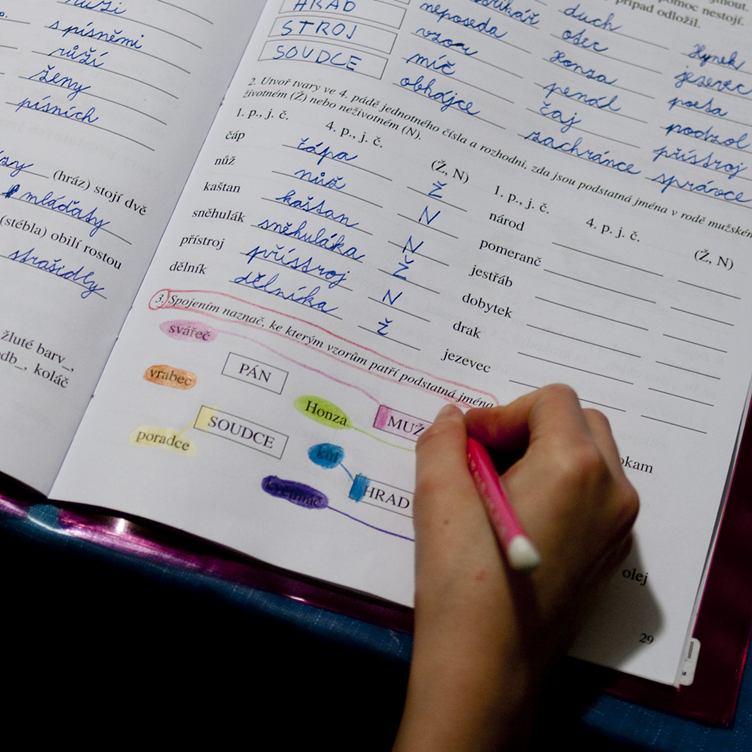 s písněmi
růží
ženy
písních
(hráz) stojí dvě
mláďaty
(stébla) obilí rostou
strašidly
žluté barv_,
koláč
HRAD
STROJ
SOUDCE
neposeda
vzor
míč
obhájce
duch
otec
Honza
penál
čaj
zachránce
Hynek
jezevec
pořa
podzol
přístroj
správce
případ odložil.
pomoc nestojí.
2. Utvoř tvary ve 4. pádě jednotného čísla a rozhodni, zda jsou podstatná jména v rodě mužském
životném (Ž) nebo neživotném (N).
1. p., j. č. 4. p., j. č. (Ž, N) 1. p., j. č. 4. p. j. č. (Ž, N)
čáp čápa Ž národ
nůž nůž N pomeranč
kaštan kaštan N jestřáb
sněhulák sněhuláka Ž dobytek
přístroj přístroj N drak
dělník dělníka Ž jezevec
3. Spojením naznač, ke kterým vzorům patří podstatná jména
svářeč
vrabec PÁN
Honza MUŽ
poradce SOUDCE
kůl HRAD
okam
olej
29